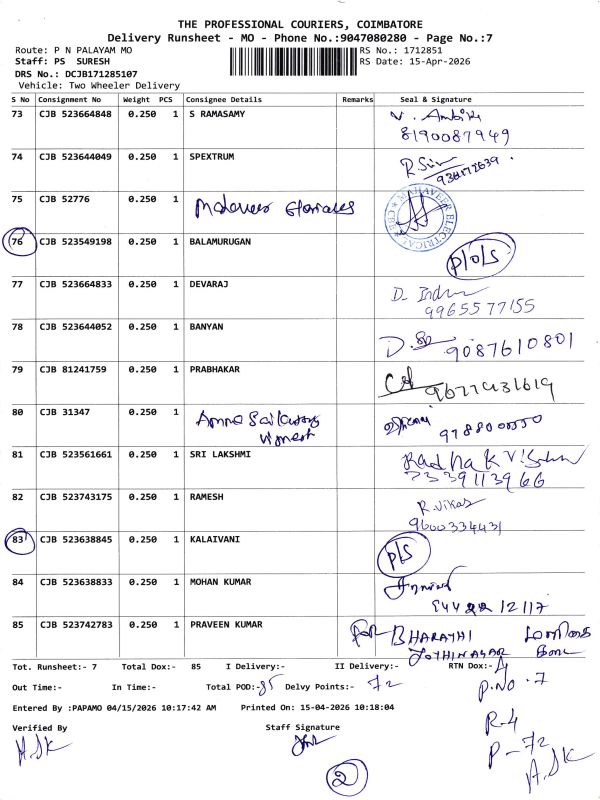 THE PROFESSIONAL COURIERS, COIMBATORE
Delivery Runsheet - MO - Phone No.:9047080280 - Page No.:7
Route: P N PALAYAM MO
RS No.: 1712851
Staff: PS SURESH
RS Date: 15-Apr-2026
DRS No.: DCJB171285107
Vehicle: Two Wheeler Delivery
S No Consignment No Weight PCS Consignee Details Remarks Seal & Signature
73 CJB 523664848 0.250 1 S RAMASAMY
8190087949
74 CJB 523644049 0.250 1 SPEXTRUM
75 CJB 52776 0.250 1
MAHAVEER ELECTRICAL CBE
76 CJB 523549198 0.250 1 BALAMURUGAN P/O/S
77 CJB 523664833 0.250 1 DEVARAJ D. Indu
9965577155
78 CJB 523644052 0.250 1 BANYAN 9087610801
79 CJB 81241759 0.250 1 PRABHAKAR
80 CJB 31347 0.250 1
81 CJB 523561661 0.250 1 SRI LAKSHMI
7339113966
82 CJB 523743175 0.250 1 RAMESH R. Vikas
9600334431
83 CJB 523638845 0.250 1 KALAIVANI P/S
84 CJB 523638833 0.250 1 MOHAN KUMAR
85 CJB 523742783 0.250 1 PRAVEEN KUMAR For BHARATHI
JOTHINAGAR
Tot. Runsheet:- 7 Total Dox:- 85 I Delivery:- II Delivery:- RTN Dox:- 4
Out Time:- In Time:- Total POD:- 85 Delvy Points:- 72
P.NO.7
Entered By :PAPAMO 04/15/2026 10:17:42 AM Printed On: 15-04-2026 10:18:04
R-4
Verified By Staff Signature
P-72
A.SK
A.SK
2